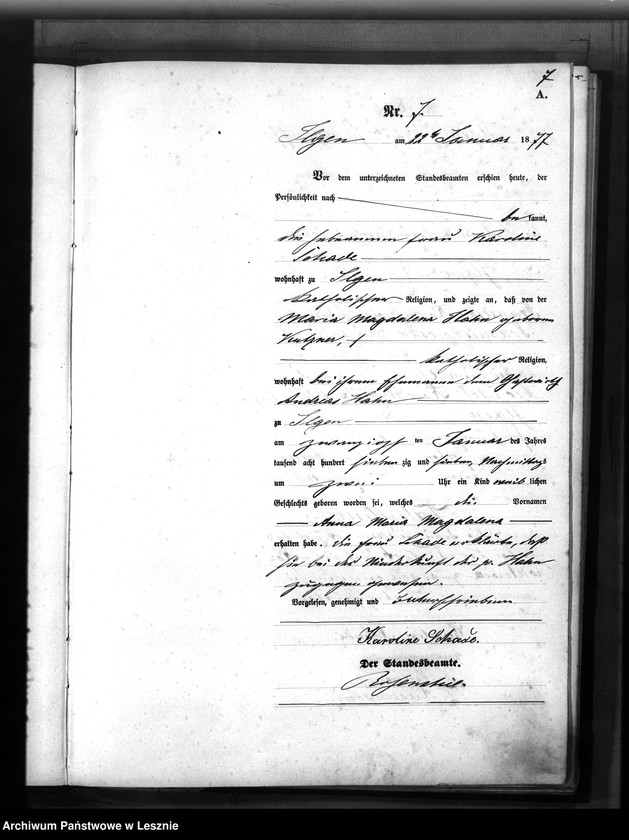 7
A.
Nr. 7.
Ilgen am 22ten Januar 1877
Vor dem unterzeichneten Standesbeamten erschien heute, der
Persönlichkeit nach
bekannt,
die Hebamme Frau Karoline
Schade
wohnhaft zu Ilgen
katholischer Religion, und zeigte an, daß von der
Maria Magdalena Hahn geborenen
Kutzner,
katholischer Religion,
wohnhaft bei ihrem Ehemanne dem Gastwirth
Andreas Hahn
zu Ilgen
am zwanzigsten Januar des Jahres
tausend acht hundert siebenzig und sieben, Nachmittags
um zwei Uhr ein Kind weiblichen
Geschlechts geboren worden sei, welches die Vornamen
Anna Maria Magdalena
erhalten habe. Die Frau Schade erklärte, daß
sie bei der Niederkunft der p. Hahn
zugegen gewesen.
Vorgelesen, genehmigt und unterschrieben
Karoline Schade.
Der Standesbeamte.
Rosenstiel.
Archiwum Państwowe w Lesznie